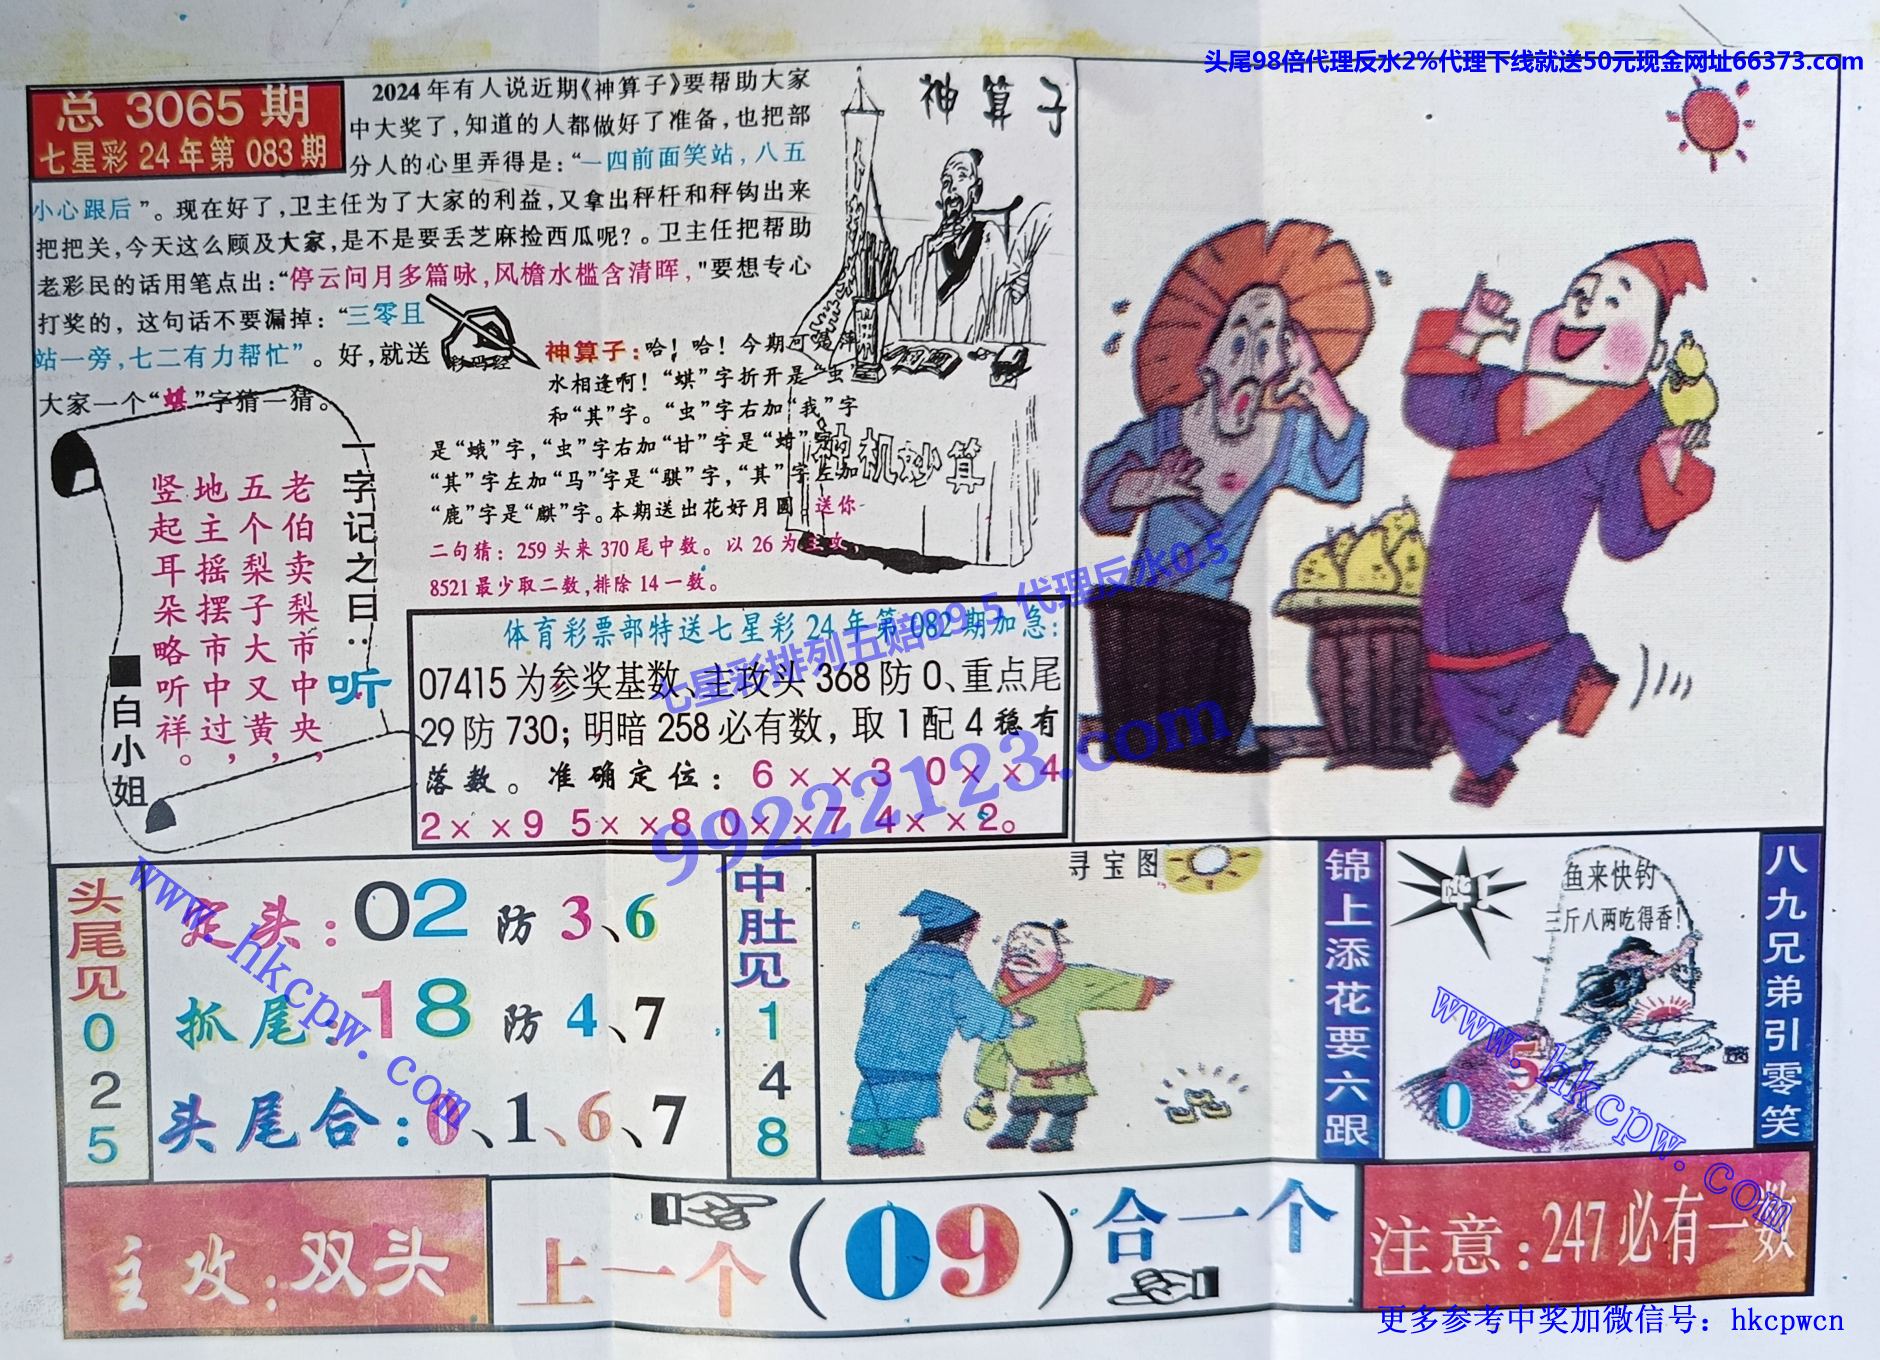 头尾98倍代理反水2%代理下线就送50元现金网址66373.com
总 3065 期
七星彩 24 年第 083 期
2024年有人说近期《神算子》要帮助大家
中大奖了，知道的人都做好了准备，也把部
分人的心里弄得是：“一四前面笑站，八五
小心跟后”。现在好了，卫主任为了大家的利益，又拿出秤杆和秤钩出来
把把关，今天这么顾及大家，是不是要丢芝麻捡西瓜呢？。卫主任把帮助
老彩民的话用笔点出：“停云问月多篇咏，风檐水槛含清晖，”要想专心
打奖的，这句话不要漏掉：“三零且
站一旁，七二有力帮忙”。好，就送
大家一个“蜞”字猜一猜。
神算子
神算子：哈！哈！今期可是萍
水相逢啊！“蜞”字折开是“虫”
和“其”字。“虫”字右加“我”字
是“蛾”字，“虫”字右加“甘”字是“蚶”字
“其”字左加“马”字是“骐”字，“其”字左加
“鹿”字是“麒”字。本期送出花好月圆：送你
二句猜：259头来370尾中数。以26为主攻，
8521最少取二数，排除14一数。
机妙算
一字记之曰：听
老伯卖梨市中央，
五个梨子大又黄，
地主摇摆市中过，
竖起耳朵略听祥。
■白小姐
体育彩票部特送七星彩24年第082期加急：
07415为参奖基数、主攻头368防0、重点尾
29防730；明暗258必有数，取1配4稳有
落数。准确定位：6××3 0××4
2××9 5××8 0××7 4××2。
七星彩排列五赔99.5 代理反水0.5
99222123.com
头尾见025
定头：02防3、6
抓尾：18防4、7
头尾合：0、1、6、7
www.hkcpw.com
中肚见148
寻宝图
锦上添花要六跟
鱼来快钓
三斤八两吃得香！
0
5
www.hkcpw.com
八九兄弟引零笑
主攻：双头
上一个（09）合一个
注意：247必有一数
更多参考中奖加微信号：hkcpwcn